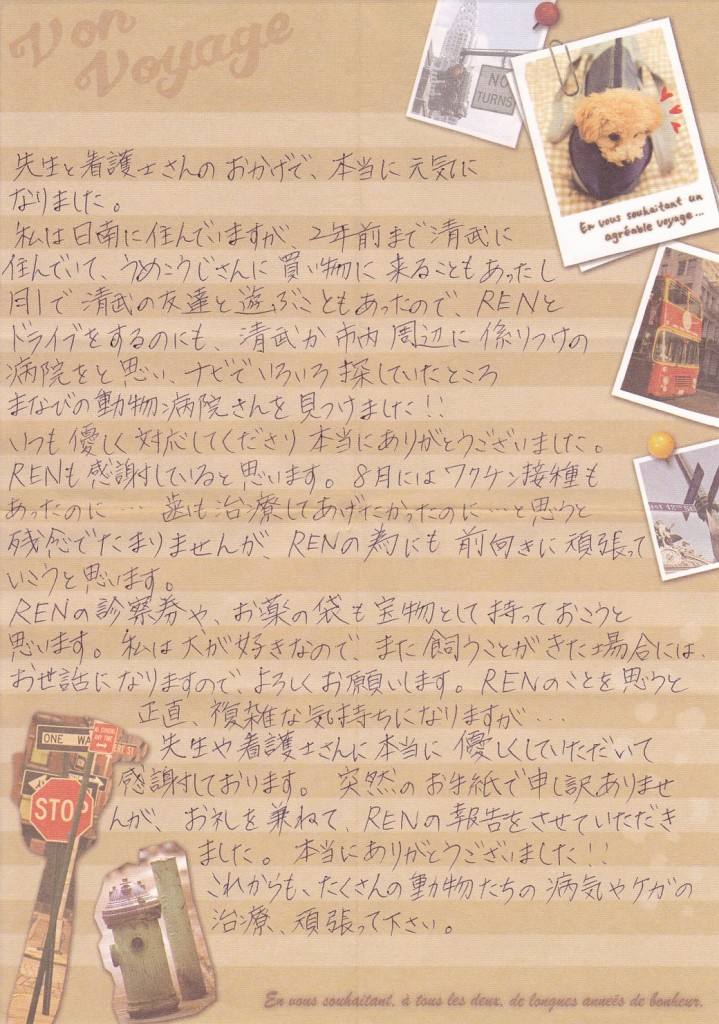 Von
Voyage
NO
TURNS
En vous souhaitant un
agréable voyage...
先生と看護士さんのおかげで、本当に元気に
なりました。
私は日南に住んでいますが、2年前まで清武に
住んでいて、うめこうじさんに買い物に来ることもあったし
月1で清武の友達と遊ぶこともあったので、RENと
ドライブをするのにも、清武か市内周辺に係りつけの
病院をと思い、ナビでいろいろ探していたところ
まなびの動物病院さんを見つけました!!
いつも優しく対応してくださり本当にありがとうございました。
RENも感謝していると思います。8月にはワクチン接種も
あったのに… 歯も治療してあげたかったのに…と思うと
残念でたまりませんが、RENの為にも前向きに頑張って
いこうと思います。
RENの診察券や、お薬の袋も宝物として持っておこうと
思います。私は犬が好きなので、また飼うことがきた場合には、
お世話になりますので、よろしくお願いします。RENのことを思うと
正直、複雑な気持ちになりますが…
先生や看護士さんに本当に優しくしていただいて
感謝しております。突然のお手紙で申し訳ありませ
んが、お礼を兼ねて、RENの報告をさせていただき
ました。本当にありがとうございました!!
これからも、たくさんの動物たちの病気やケガの
治療、頑張って下さい。
ONE WA
STOP
En vous souhaitant, à tous les deux, de longues anneés de bonheur.